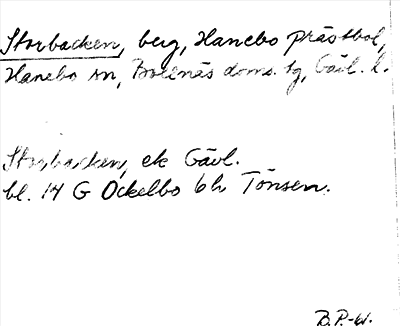 Storbacken, berg, Hanebo prästbol,
Hanebo sn, Bollnäs doms. tg, Gävl. l.
Storbacken, ek Gävl.
bl. 14 G Ockelbo 6h Tönsen.
B.P.-61.